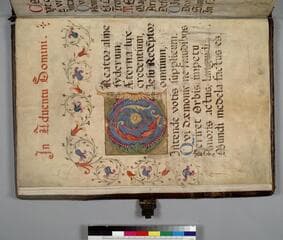 In Adventu Domini.
Creator alme
syderum,
Æterna lux
credentium,
Jesu Redemptor
omnium,
Intende votis supplicum.
Qui dæmonis ne fraudibus
Periret orbis, impetu
Amoris actus, languidi
Mundi medela factus es.